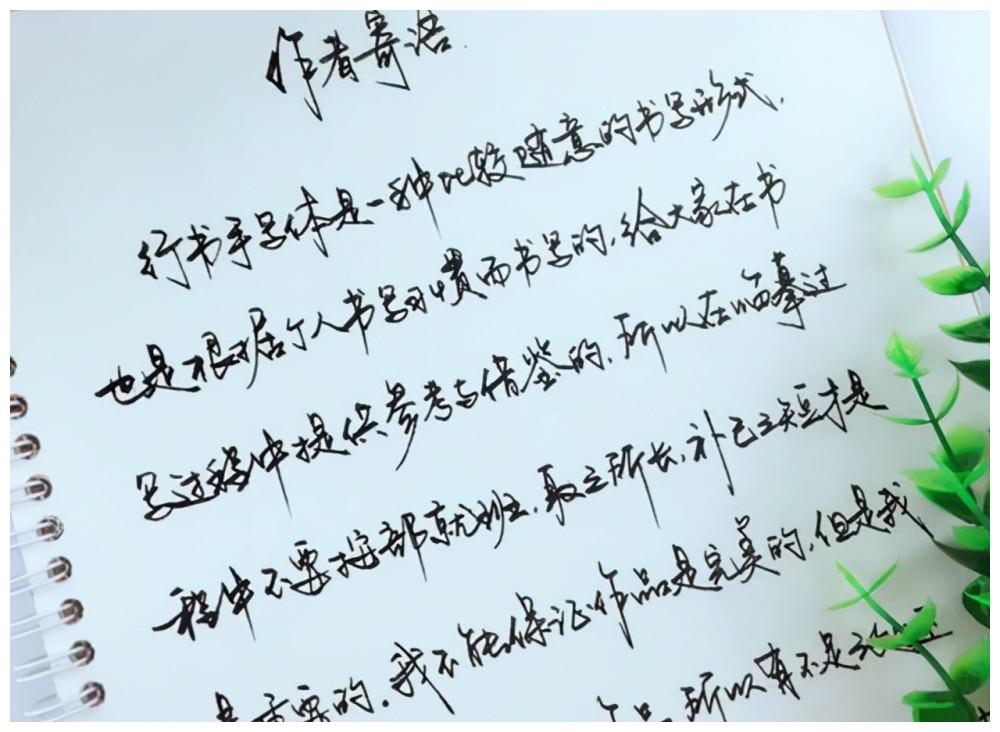 作者寄语
行书手写体是一种比较随意的书写形式,
也是根据个人书写习惯而书写的,给大家在书
写过程中提供参考与借鉴的,所以在临摹过
程中不要按部就班,取之所长,补己之短才是
最重要的。我不能保证作品是完美的,但是我
作品,所以有不足